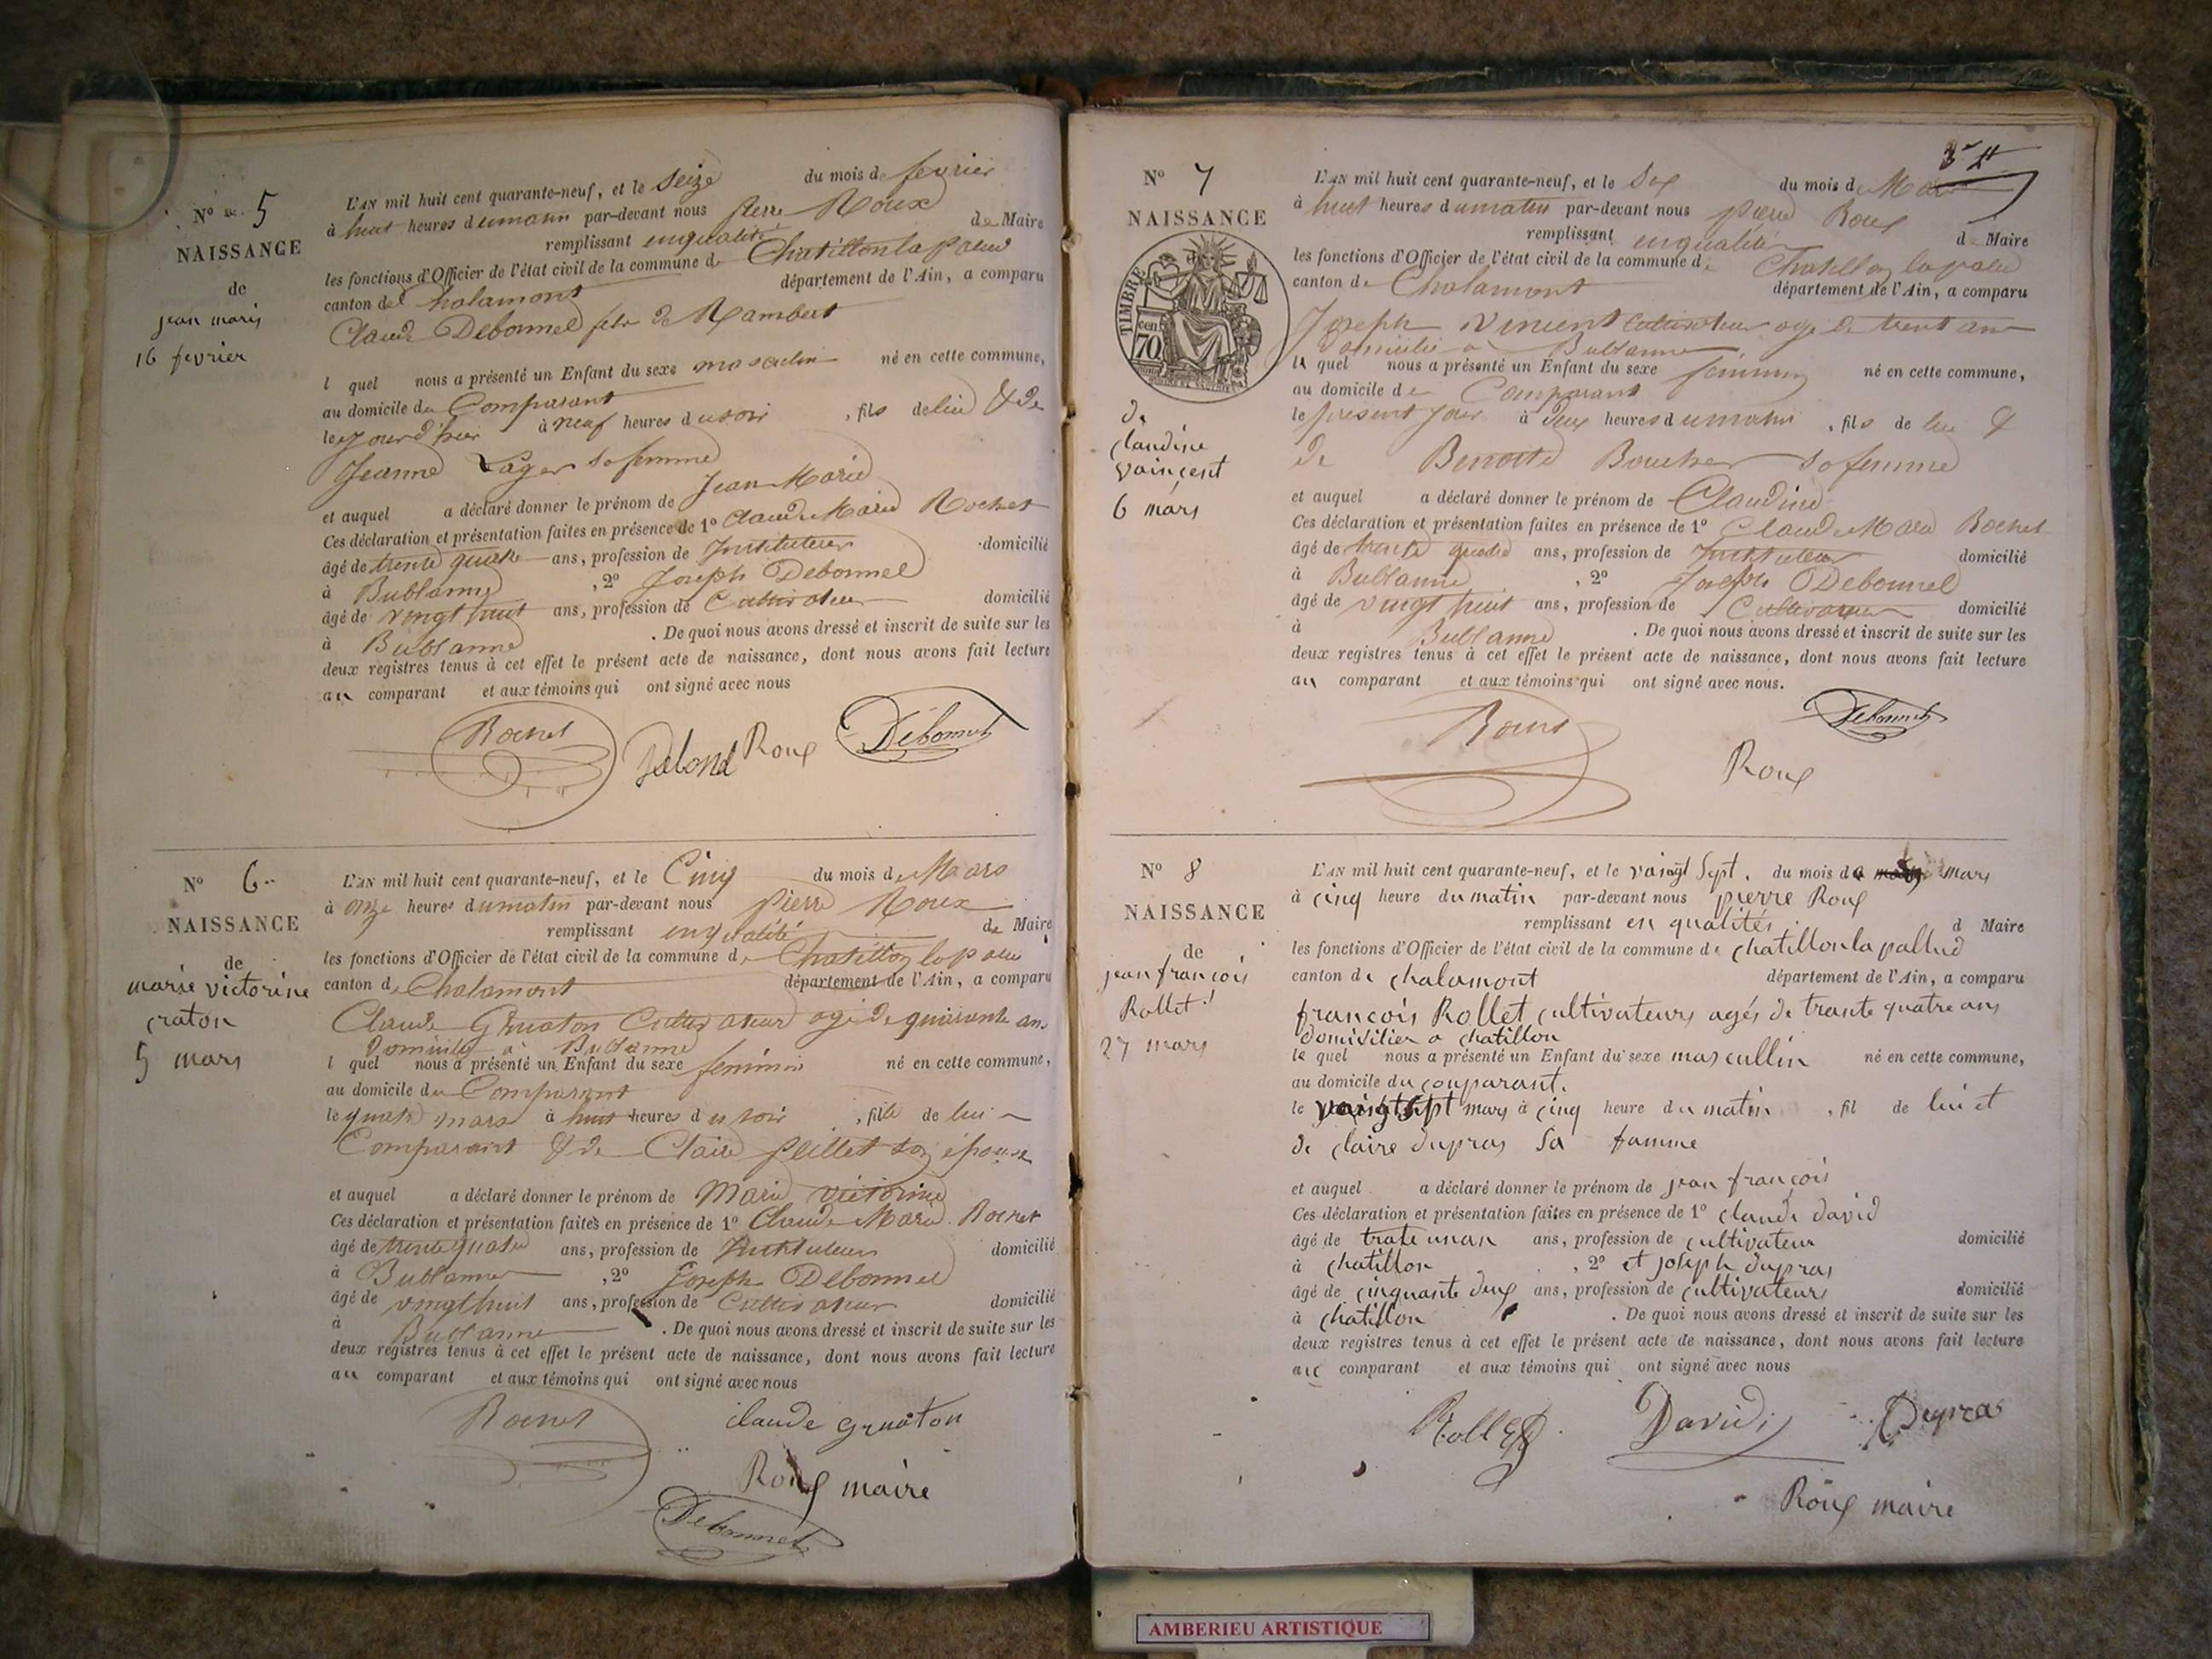 N° 5
NAISSANCE
de
jean marie
16 fevrier
L'AN mil huit cent quarante-neuf, et le Seize du mois de fevrier
à huit heures du matin par-devant nous Pierre Roux
remplissant en qualité de Maire
les fonctions d'Officier de l'état civil de la commune de Chatillon la palud
canton de Chalamont département de l'Ain, a comparu
Claude Debonnel fils de Rambert
l quel nous a présenté un Enfant du sexe masculin né en cette commune,
au domicile du Comparant
le jour d'hier à neuf heures du soir , fils de lui & de
Jeanne Lager sa femme
et auquel a déclaré donner le prénom de Jean Marie
Ces déclaration et présentation faites en présence de 1° Claude Marie Rochet
âgé de trente quatre ans, profession de Instituteur domicilié
à Bublanne , 2° Joseph Debonnel
âgé de vingt huit ans, profession de Cultivateur domicilié
à Bublanne . De quoi nous avons dressé et inscrit de suite sur les
deux registres tenus à cet effet le présent acte de naissance, dont nous avons fait lecture
au comparant et aux témoins qui ont signé avec nous
Rochet Roux Debonnel
N° 6
NAISSANCE
de
marie victorine
craton
5 mars
L'AN mil huit cent quarante-neuf, et le Cinq du mois de Mars
à onze heures du matin par-devant nous Pierre Roux
remplissant en qualité de Maire
les fonctions d'Officier de l'état civil de la commune de Chatillon la palud
canton de Chalamont département de l'Ain, a comparu
Claude Gruaton Cultivateur agé de quarante ans
Domicilié à Bublanne
l quel nous a présenté un Enfant du sexe feminin né en cette commune,
au domicile du Comparant
le quatre mars à huit heures du soir , fille de lui
Comparant & de Claire peillet son épouse
et auquel a déclaré donner le prénom de Marie victorine
Ces déclaration et présentation faites en présence de 1° Claude Marie Rochet
âgé de trente quatre ans, profession de Instituteur domicilié
à Bublanne , 2° Joseph Debonnel
âgé de vingt huit ans, profession de Cultivateur domicilié
à Bublanne . De quoi nous avons dressé et inscrit de suite sur les
deux registres tenus à cet effet le présent acte de naissance, dont nous avons fait lecture
au comparant et aux témoins qui ont signé avec nous
Rochet claude gruaton
Roux maire
Debonnel
N° 7
NAISSANCE
TIMBRE
cen.
70
de
claudine
vainçent
6 mars
L'AN mil huit cent quarante-neuf, et le Six du mois de Mars
à huit heures du matin par-devant nous pierre Roux
remplissant en qualité d Maire
les fonctions d'Officier de l'état civil de la commune de Chatillon la palud
canton de Chalamont département de l'Ain, a comparu
Joseph Vincent Cultivateur agé de trent ans
domicilié a Bublanne
le quel nous a présenté un Enfant du sexe féminin né en cette commune,
au domicile de Comparant
le present jour à deux heures du matin , fils de lui &
de Benoite Boucher sa femme
et auquel a déclaré donner le prénom de Claudine
Ces déclaration et présentation faites en présence de 1° Claude Marie Rochet
âgé de trente quatre ans, profession de Instituteur domicilié
à Bublanne , 2° Joseph Debonnel
âgé de vingt huit ans, profession de Cultivateur domicilié
à Bublanne . De quoi nous avons dressé et inscrit de suite sur les
deux registres tenus à cet effet le présent acte de naissance, dont nous avons fait lecture
au comparant et aux témoins qui ont signé avec nous.
Rochet Debonnel
Roux
N° 8
NAISSANCE
de
jean françois
Rollet
27 mars
L'AN mil huit cent quarante-neuf, et le vaingt Sept du mois de mars
à cinq heure du matin par-devant nous pierre Roux
remplissant en qualité d Maire
les fonctions d'Officier de l'état civil de la commune de chatillon la pallud
canton de chalamont département de l'Ain, a comparu
françois Rollet cultivateurs agés de trante quatre ans
domisilier a chatillon
le quel nous a présenté un Enfant du sexe mascullin né en cette commune,
au domicile du conparant.
le vaingt sept mars à cinq heure du matin , fil de lui et
de claire dupras sa famme
et auquel a déclaré donner le prénom de jean françois
Ces déclaration et présentation faites en présence de 1° claude david
âgé de ans, profession de cultivateur domicilié
à chatillon , 2° et joseph dupras
âgé de cinquante deux ans, profession de cultivateurs domicilié
à chatillon . De quoi nous avons dressé et inscrit de suite sur les
deux registres tenus à cet effet le présent acte de naissance, dont nous avons fait lecture
au comparant et aux témoins qui ont signé avec nous
Rollet David Dupras
Roux maire
AMBERIEU ARTISTIQUE